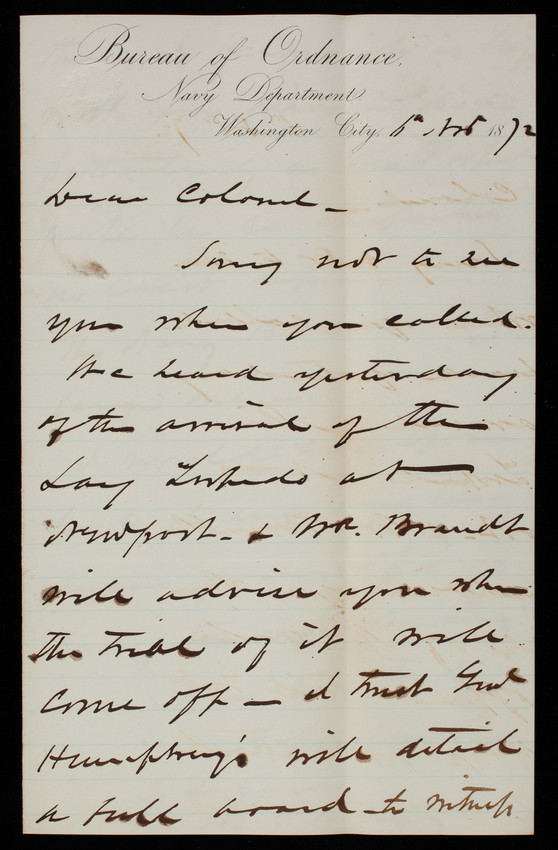 Bureau of Ordnance,
Navy Department
Washington City, 6th Nov 1872
Dear Colonel -
Sorry not to see
you when you called.
We heard yesterday
of the arrival of the
Lay Torpedo at
Newport - & Mr. Brandt
will advise you when
the trial of it will
come off - I trust Genl
Humphreys will detail
a full board to witness